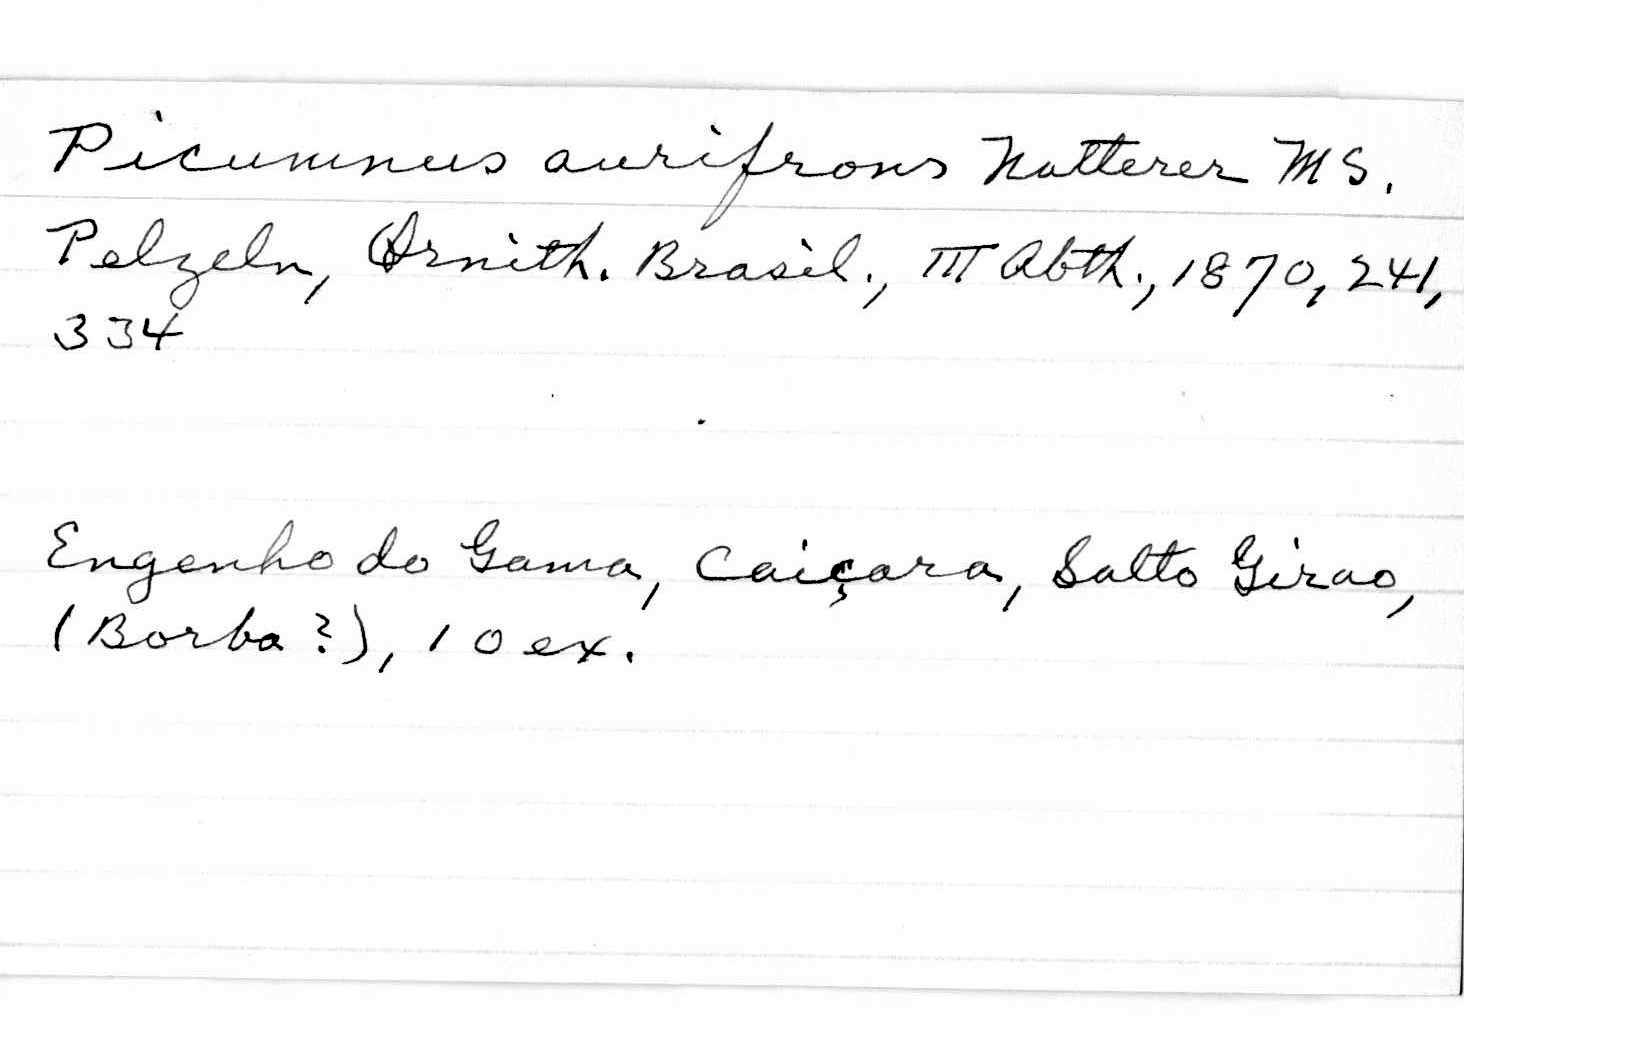 Picumnus aurifrons Natterer MS.
Pelzeln, Ornith. Brasil., III Abth., 1870, 241,
334
Engenho do Gama, Caiçara, Salto Girao,
(Borba?), 10 ex.